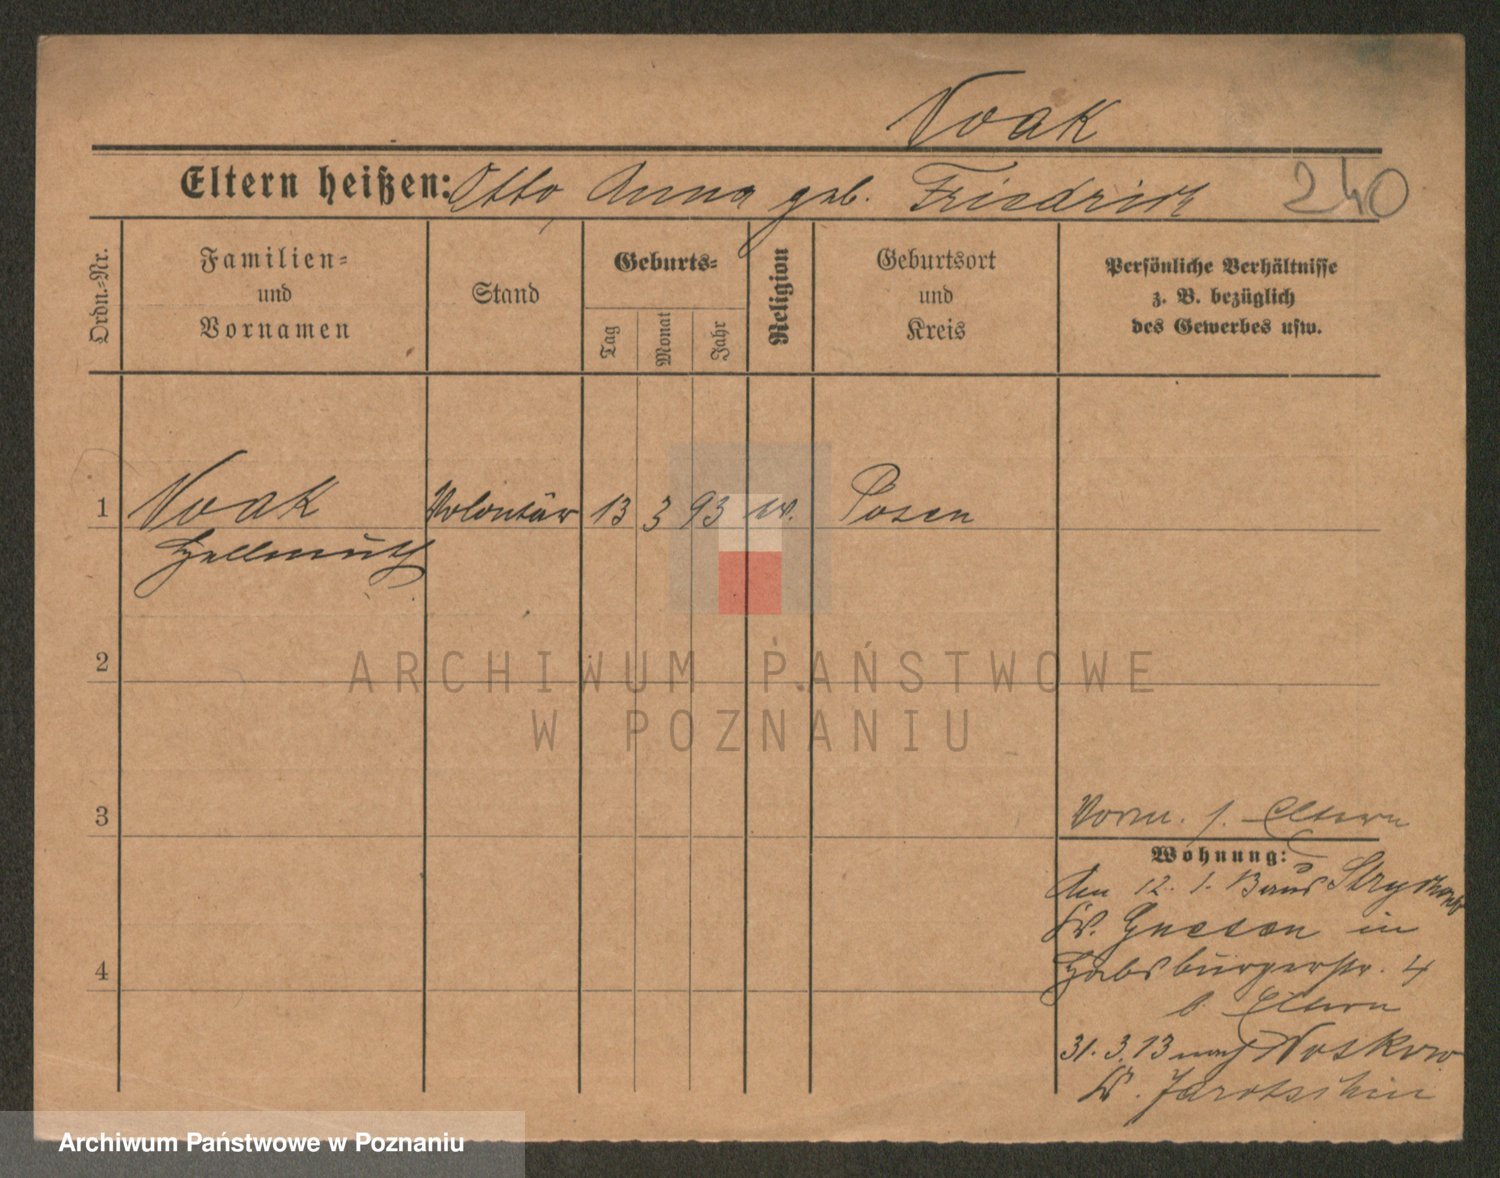 Noak
Eltern heißen: Otto Anna geb. Friedrich 240
Ordn.-Nr.
Familien-
und
Vornamen
Stand
Geburts-
Tag
Monat
Jahr
Religion
Geburtsort
und
Kreis
Persönliche Verhältnisse
z. B. bezüglich
des Gewerbes usw.
1 Noak Volontär 13 3 93 ev. Posen
Hellmuth
2
3
4
Vorm. s. Eltern
Wohnung:
Am 12. 1. 13 aus
Kr. Gnesen in
Habsburgerstr. 4
b. Eltern
31. 3. 13 nach Noskow
Kr. Jarotschin
ARCHIWUM PAŃSTWOWE
W POZNANIU
Archiwum Państwowe w Poznaniu